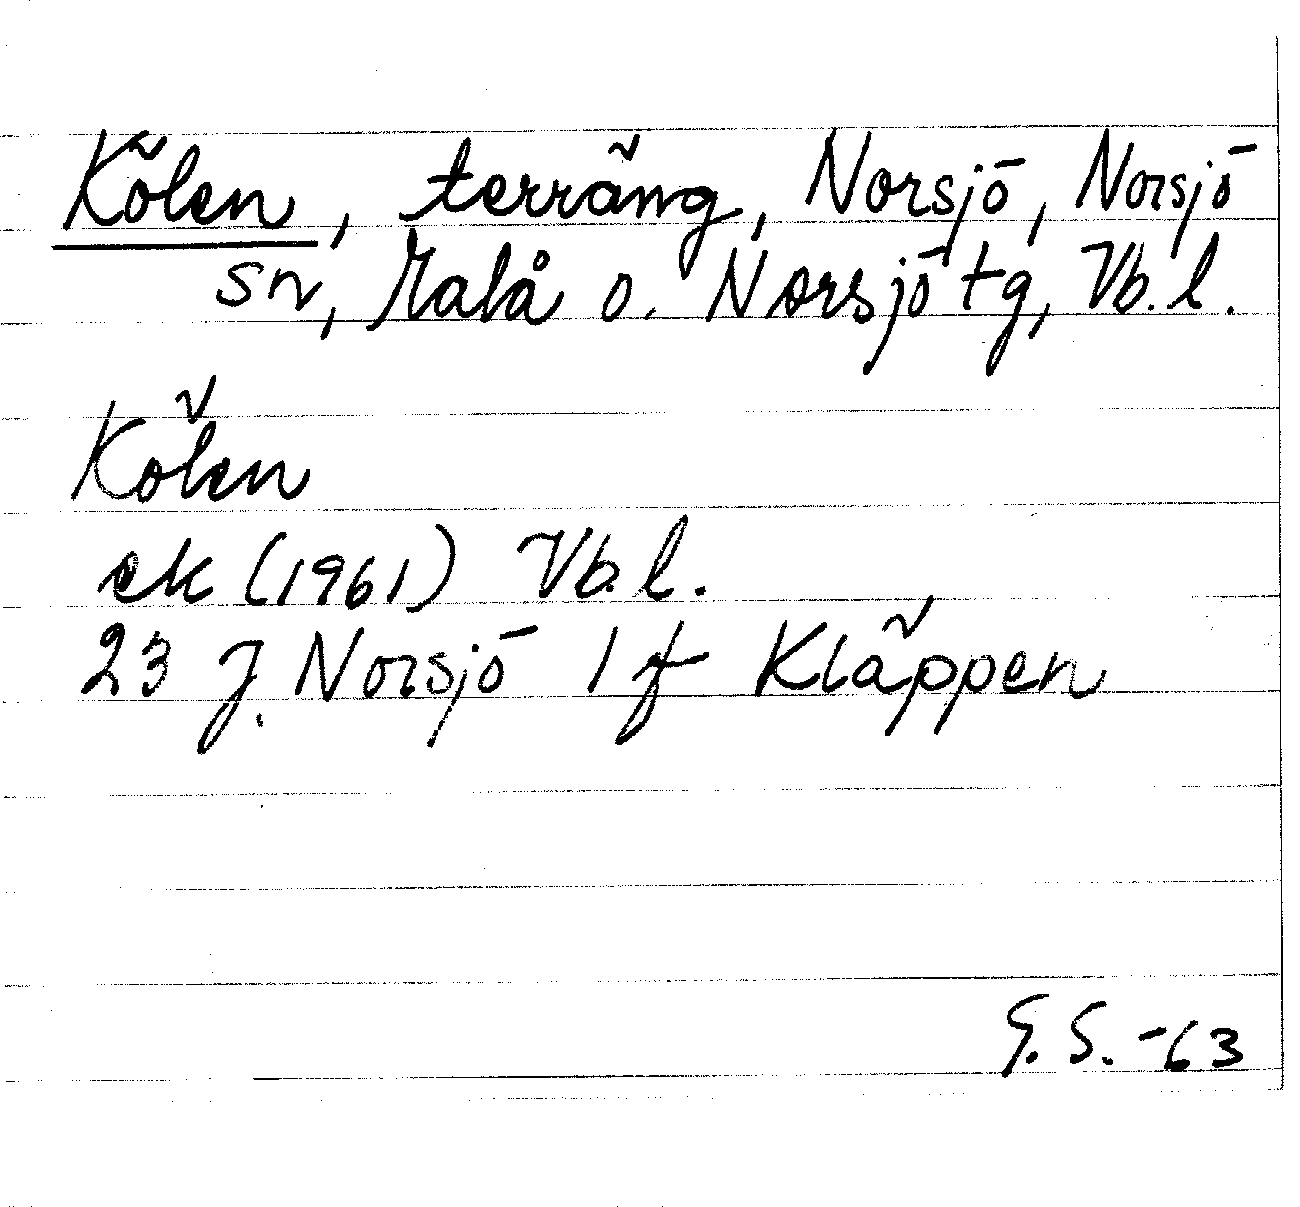 Kölen, terräng, Norsjö, Norsjö
sn, Malå o. Norsjö tg, Vb. l.
Kölen
ek (1961) Vb. l.
23 J Norsjö 1 f Kläppen
G. S. -63